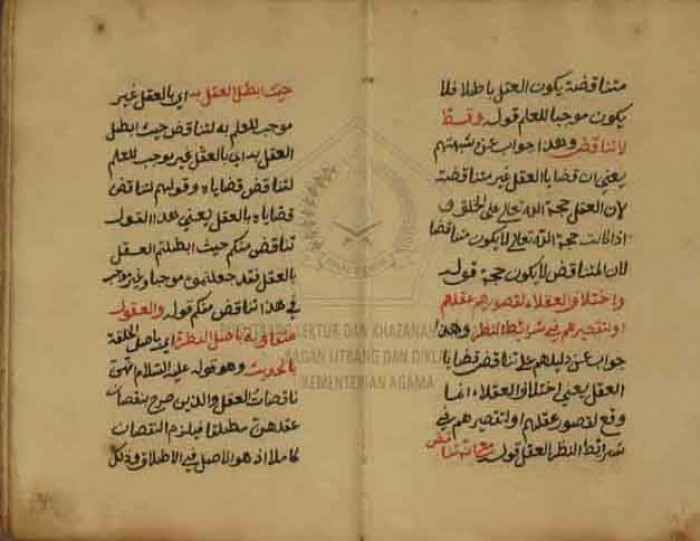 متناقضة يكون العقل باطلا فلا
يكون موجبا للعلم قوله وقسط
لا تناقض وهذا جواب عن شبهتهم
يعني ان قضايا العقل غير متناقضة
لان العقل حجة الله تعالى على الخلق و
اذا كانت حجة الله تعالى لا يكون متناقضا
لان المتناقض لا يكون حجة قوله
واختلاف العقلاء لقصور عقلهم
او لتقصيرهم في شرائط النظر وهذا
جواب عن دليلهم على تناقض قضايا
العقل يعني اختلاف العقلاء انما
وقع لقصور عقلهم او لتقصيرهم في
شرائط النظر العقل قوله مع انه تناقض
حيث ابطل العقل به اي بالعقل غير
موجب للعلم به لتناقض حيث ابطل
العقل به اي بالعقل غير موجب للعلم
لتناقض قضاياه وقولهم لتناقض
قضاياه بالعقل يعني هذا القول
تناقض منكم حيث ابطلتم العقل
بالعقل فقد جعلتموه موجبا وغير موجب
في هذا تناقض منكم قوله والعقول
متفاوتة باصل الفطرة اي باصل الخلقة
بالحديث وهو قوله عليه السلام انهن
ناقصات العقل والدين صرح بنقصان
عقلهن مطلقا فيلزم النقصان
كاملا اذ هو الاصل في الاطلاق وذلك
LEKTUR DAN KHAZANAH
BADAN LITBANG DAN DIKLAT
KEMENTERIAN AGAMA